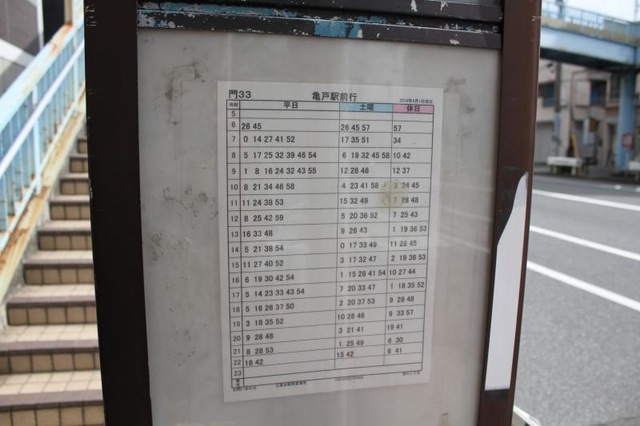 門33 亀戸駅前行
時間 平日 土曜 休日
5
6 26 45 26 45 57 57
7 0 14 27 41 52 17 35 51 34
8 5 17 25 32 39 46 54 6 19 32 45 58 10 42
9 1 8 16 24 32 43 55 12 28 46 12 37
10 8 21 34 46 58 4 23 41 58 3 24 45
11 11 24 38 53 15 32 49 7 28 48
12 8 25 42 59 5 20 36 52 7 25 43
13 16 33 48 9 26 43 1 19 36 53
14 5 21 38 54 0 17 33 49 11 28 45
15 11 27 40 52 3 17 32 47 2 19 36 53
16 6 19 30 42 54 1 15 28 41 54 10 27 44
17 5 14 23 33 43 54 7 20 33 47 1 18 35 52
18 5 16 26 37 50 2 20 37 53 9 28 48
19 3 18 35 52 10 28 46 8 33 57
20 9 28 48 3 21 41 19 41
21 8 28 53 1 25 49 6 30
22 18 42 15 42 6 41
23